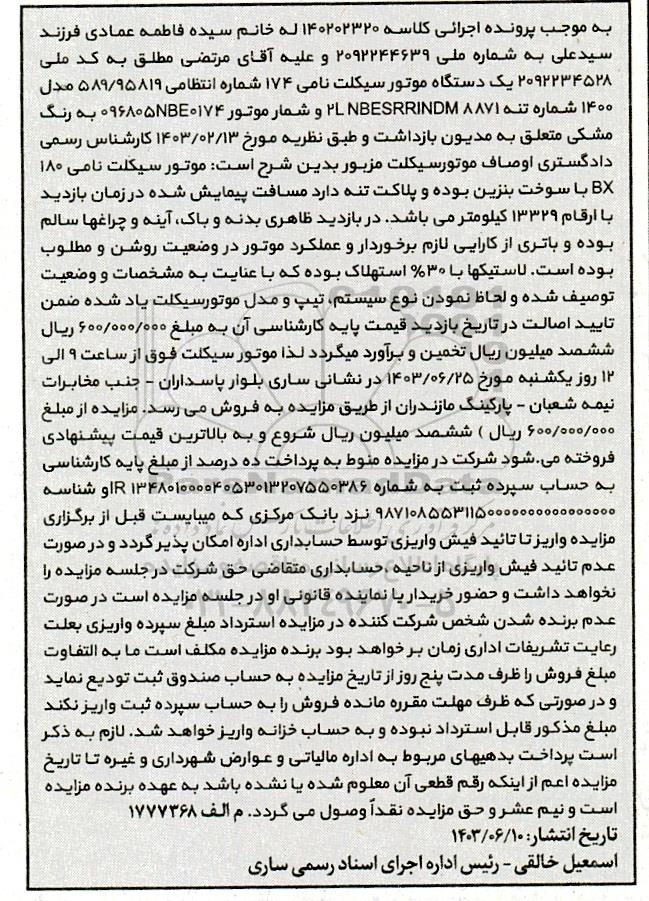 به موجب پرونده اجرائی کلاسه ۱۴۰۲۰۲۳۲۰ له خانم سیده فاطمه عمادی فرزند
سیدعلی به شماره ملی ۲۰۹۲۲۴۴۶۳۹ و علیه آقای مرتضی مطلق به کد ملی
۲۰۹۲۲۳۴۵۲۸ یک دستگاه موتور سیکلت نامی ۱۷۴ شماره انتظامی ۵۸۹/۹۵۸۱۹ مدل
۱۴۰۰ شماره تنه ۲L NBESRRINDM ۸۸۷۱ و شمار موتور ۰۹۶۸۰۵NBE۰۱۷۴ به رنگ
مشکی متعلق به مدیون بازداشت و طبق نظریه مورخ ۱۴۰۳/۰۲/۱۳ کارشناس رسمی
دادگستری اوصاف موتورسیکلت مزبور بدین شرح است: موتور سیکلت نامی ۱۸۰
BX با سوخت بنزین بوده و پلاکت تنه دارد مسافت پیمایش شده در زمان بازدید
با ارقام ۱۳۳۲۹ کیلومتر می باشد. در بازدید ظاهری بدنه و باک، آینه و چراغها سالم
بوده و باتری از کارایی لازم برخوردار و عملکرد موتور در وضعیت روشن و مطلوب
بوده است. لاستیکها با ۳۰% استهلاک بوده که با عنایت به مشخصات و وضعیت
توصیف شده و لحاظ نمودن نوع سیستم، تیپ و مدل موتورسیکلت یاد شده ضمن
تایید اصالت در تاریخ بازدید قیمت پایه کارشناسی آن به مبلغ ۶۰۰/۰۰۰/۰۰۰ ریال
ششصد میلیون ریال تخمین و برآورد میگردد لذا موتور سیکلت فوق از ساعت ۹ الی
۱۲ روز یکشنبه مورخ ۱۴۰۳/۰۶/۲۵ در نشانی ساری بلوار پاسداران - جنب مخابرات
نیمه شعبان - پارکینگ مازندران از طریق مزایده به فروش می رسد. مزایده از مبلغ
۶۰۰/۰۰۰/۰۰۰ ریال ) ششصد میلیون ریال شروع و به بالاترین قیمت پیشنهادی
فروخته می.شود شرکت در مزایده منوط به پرداخت ده درصد از مبلغ پایه کارشناسی
به حساب سپرده ثبت به شماره IR ۱۳۴۸۰۱۰۰۰۰۴۰۵۳۰۱۳۲۰۷۵۵۰۳۸۶و شناسه
نزد بانک مرکزی که میبایست قبل از برگزاری
مزایده واریز تا تائید فیش واریزی توسط حسابداری اداره امکان پذیر گردد و در صورت
عدم تائید فیش واریزی از ناحیه ،حسابداری متقاضی حق شرکت در جلسه مزایده را
نخواهد داشت و حضور خریدار یا نماینده قانونی او در جلسه مزایده است در صورت
عدم برنده شدن شخص شرکت کننده در مزایده استرداد مبلغ سپرده واریزی بعلت
رعایت تشریفات اداری زمان بر خواهد بود برنده مزایده مکلف است ما به التفاوت
مبلغ فروش را ظرف مدت پنج روز از تاریخ مزایده به حساب صندوق ثبت تودیع نماید
و در صورتی که ظرف مهلت مقرره مانده فروش را به حساب سپرده ثبت واریز نکند
مبلغ مذکور قابل استرداد نبوده و به حساب خزانه واریز خواهد شد. لازم به ذکر
است پرداخت بدهیهای مربوط به اداره مالیاتی و عوارض شهرداری و غیره تا تاریخ
مزایده اعم از اینکه رقم قطعی آن معلوم شده یا نشده باشد به عهده برنده مزایده
است و نیم عشر و حق مزایده نقداً وصول می گردد. م الف ۱۷۷۷۳۶۸
تاریخ انتشار: ۱۴۰۳/۰۶/۱۰
اسمعیل خالقی - رئیس اداره اجرای اسناد رسمی ساری